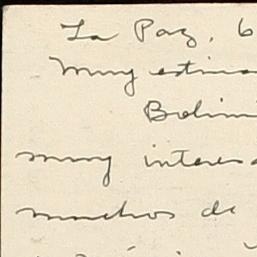 La Paz, 6
Muy estima
Bolivi
muy interesa
muchos de